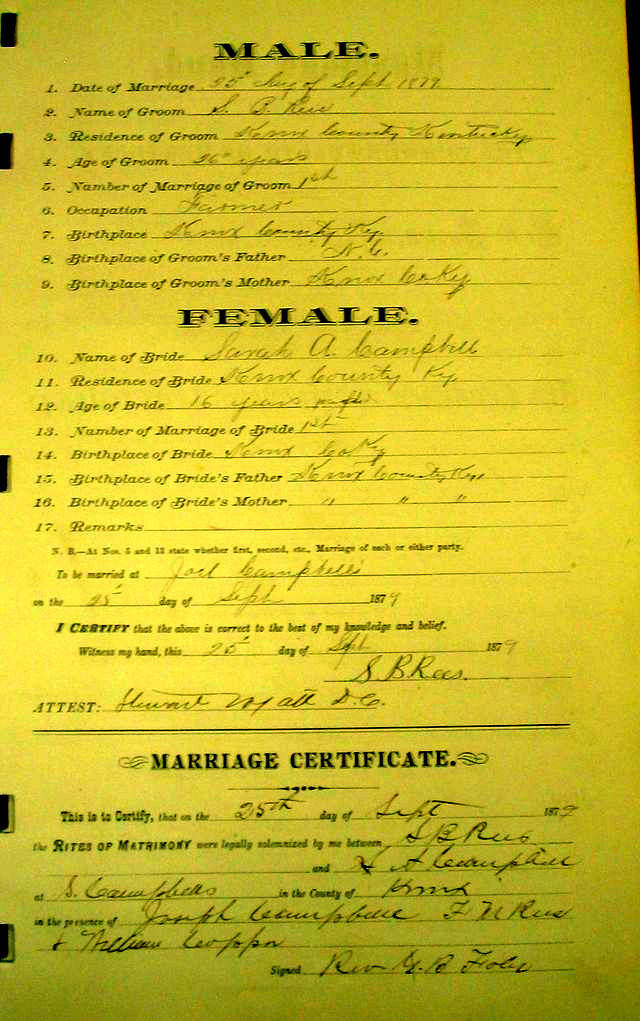 MALE.
1. Date of Marriage 25 day of Sept 1879
2. Name of Groom S. B. Rees
3. Residence of Groom Knox County Kentucky
4. Age of Groom 26 years
5. Number of Marriage of Groom 1st
6. Occupation Farmer
7. Birthplace Knox County Ky.
8. Birthplace of Groom's Father N. C.
9. Birthplace of Groom's Mother Knox Co Ky
FEMALE.
10. Name of Bride Sarah A. Campbell
11. Residence of Bride Knox County Ky.
12. Age of Bride 16 years
13. Number of Marriage of Bride 1st
14. Birthplace of Bride Knox Co Ky
15. Birthplace of Bride's Father Knox County Ky
16. Birthplace of Bride's Mother " " "
17. Remarks
N. B.—At Nos. 5 and 13 state whether first, second, etc., Marriage of each or either party.
To be married at Joel Campbells
on the 25 day of Sept 1879
I CERTIFY that the above is correct to the best of my knowledge and belief.
Witness my hand, this 25 day of Sept 1879
S. B Rees.
ATTEST: Stewart Wyatt D. C.
MARRIAGE CERTIFICATE.
This is to Certify, that on the 25th day of Sept 1879
the RITES OF MATRIMONY were legally solemnized by me between S B Rees
and S A Campbell
at J. Campbells in the County of Knox
in the presence of Joseph Campbell F M Rees
& William
Signed Rev B Foley